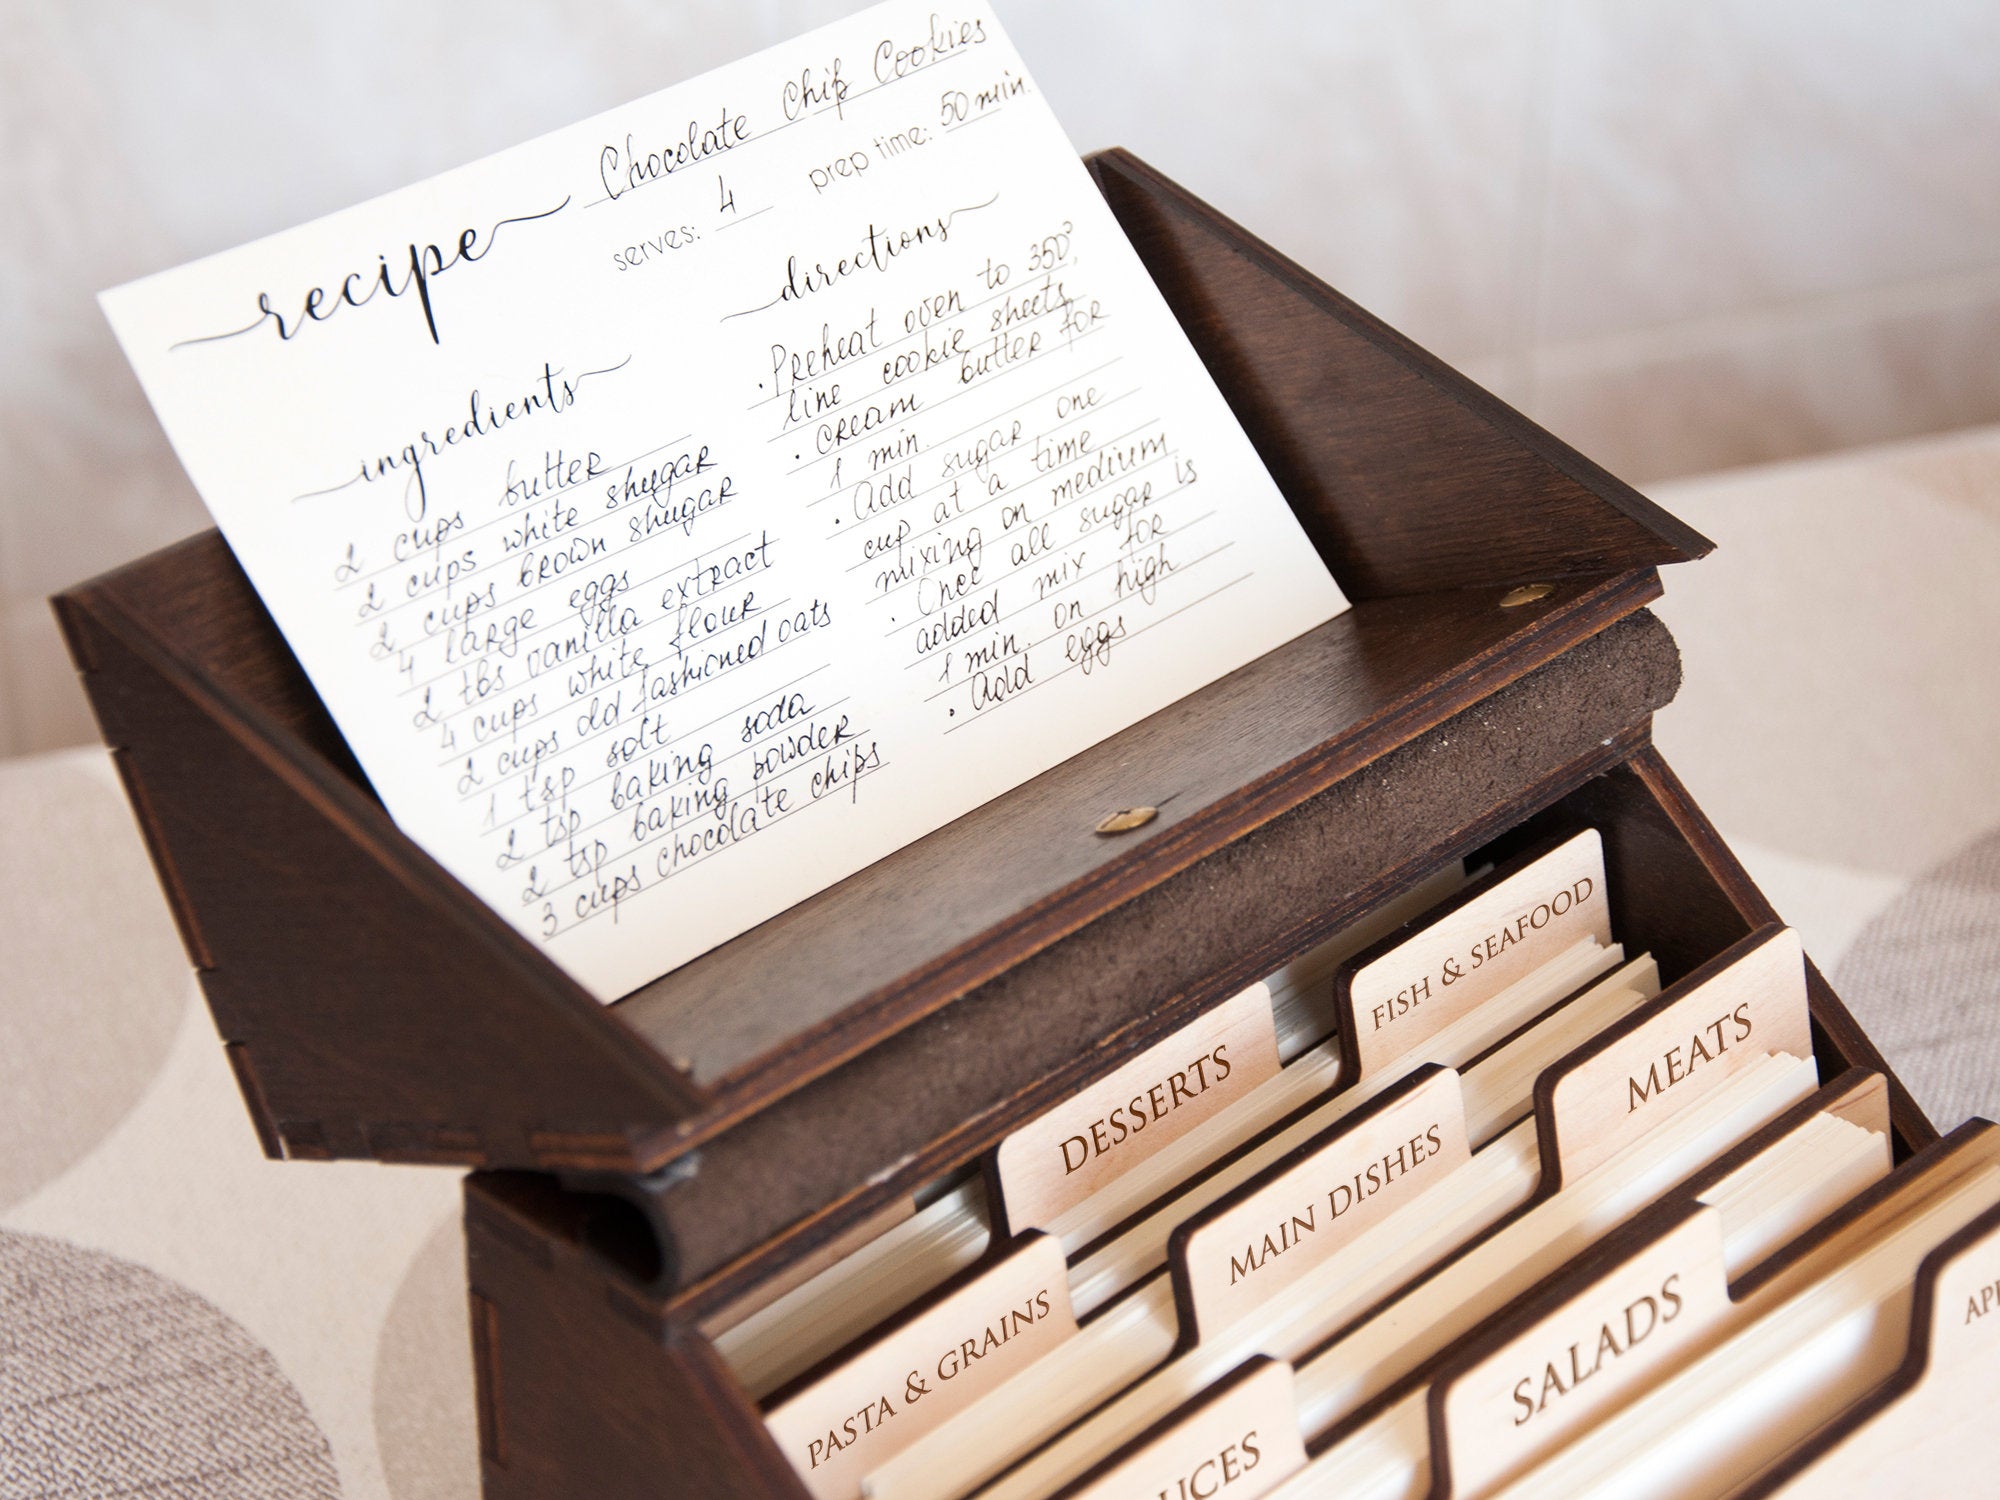 recipe Chocolate Chip Cookies
serves: 4 prep time: 50 min.
ingredients
2 cups butter
2 cups white shugar
2 cups brown shugar
4 large eggs
2 tbs vanilla extract
4 cups white flour
2 cups old fashioned oats
1 tsp salt
2 tsp baking soda
2 tsp baking powder
3 cups chocolate chips
directions
• Preheat oven to 350°,
line cookie sheets
• cream butter for
1 min.
• Add sugar one
cup at a time
mixing on medium
• Once all sugar is
added mix for
1 min. on high
• Add eggs
FISH & SEAFOOD
DESSERTS
MEATS
MAIN DISHES
PASTA & GRAINS
SALADS
UCES
APP